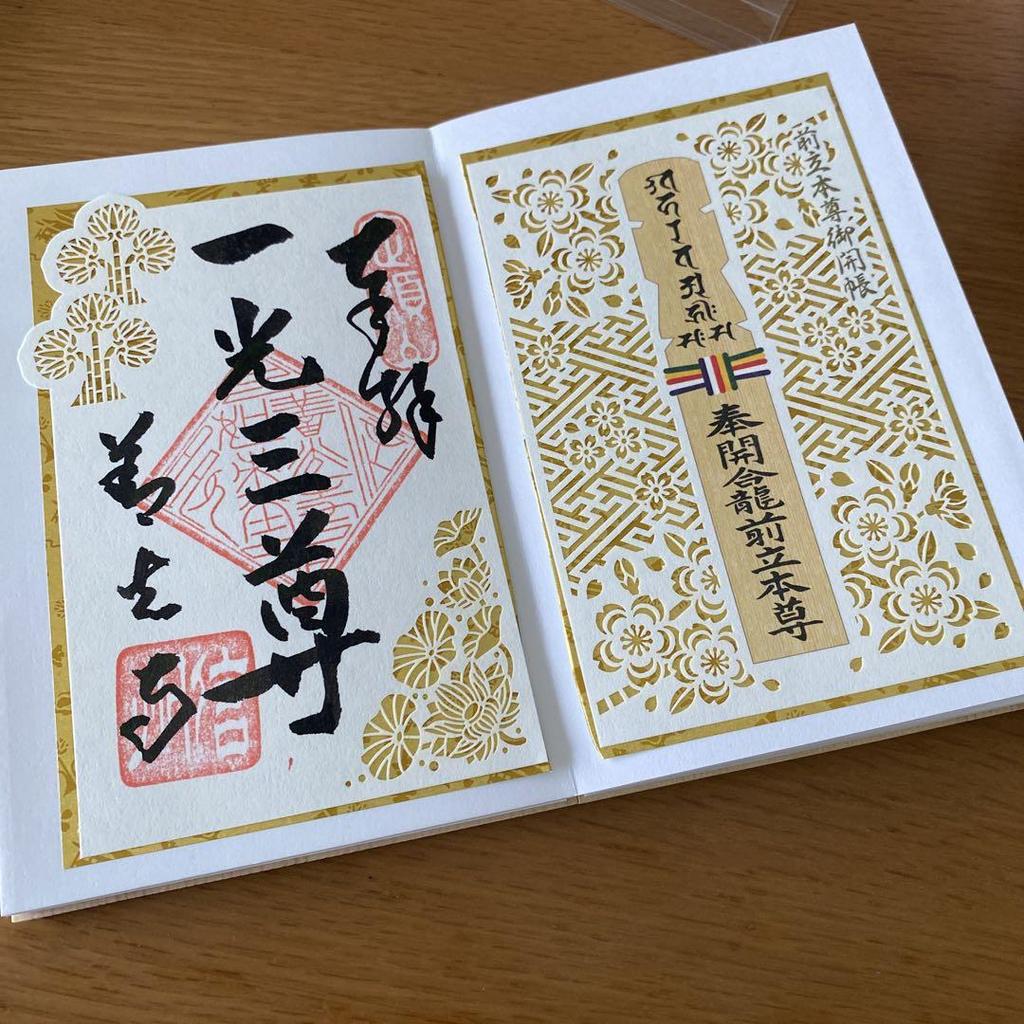 前立本尊御開帳
奉開龕前立本尊
奉拝
一光三尊
善光寺